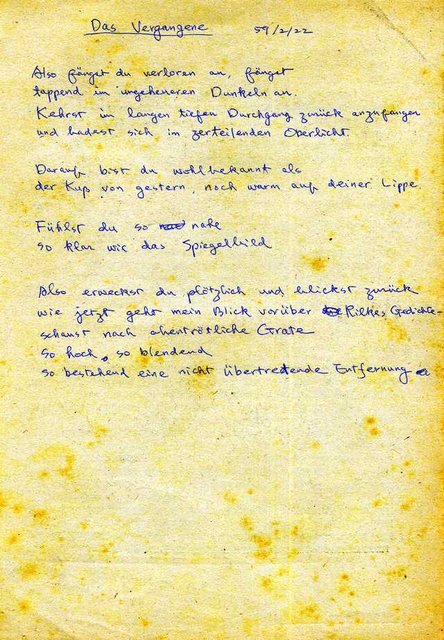 Das Vergangene 59/2/22
Also fänget du verloren an, fänget
tappend im ungeheuren Dunkeln an.
Kehrst in langen tiefen Durchgang zurück anzufangen
und badest sich im zerteilenden Oberlicht.
Darauf bist du wohlbekannt als
der Kuß von gestern, noch warm auf deiner Lippe.
Fühlst du so nahe
so klar wie das Spiegelbild
Also erweckst du plötzlich und blickst zurück
wie jetzt geht mein Blick vorüber Rilkes Gedichte-
schaust nach abentrötliche Grate
so hoch, so blendend
so bestehend eine nicht übertretende Entfernung